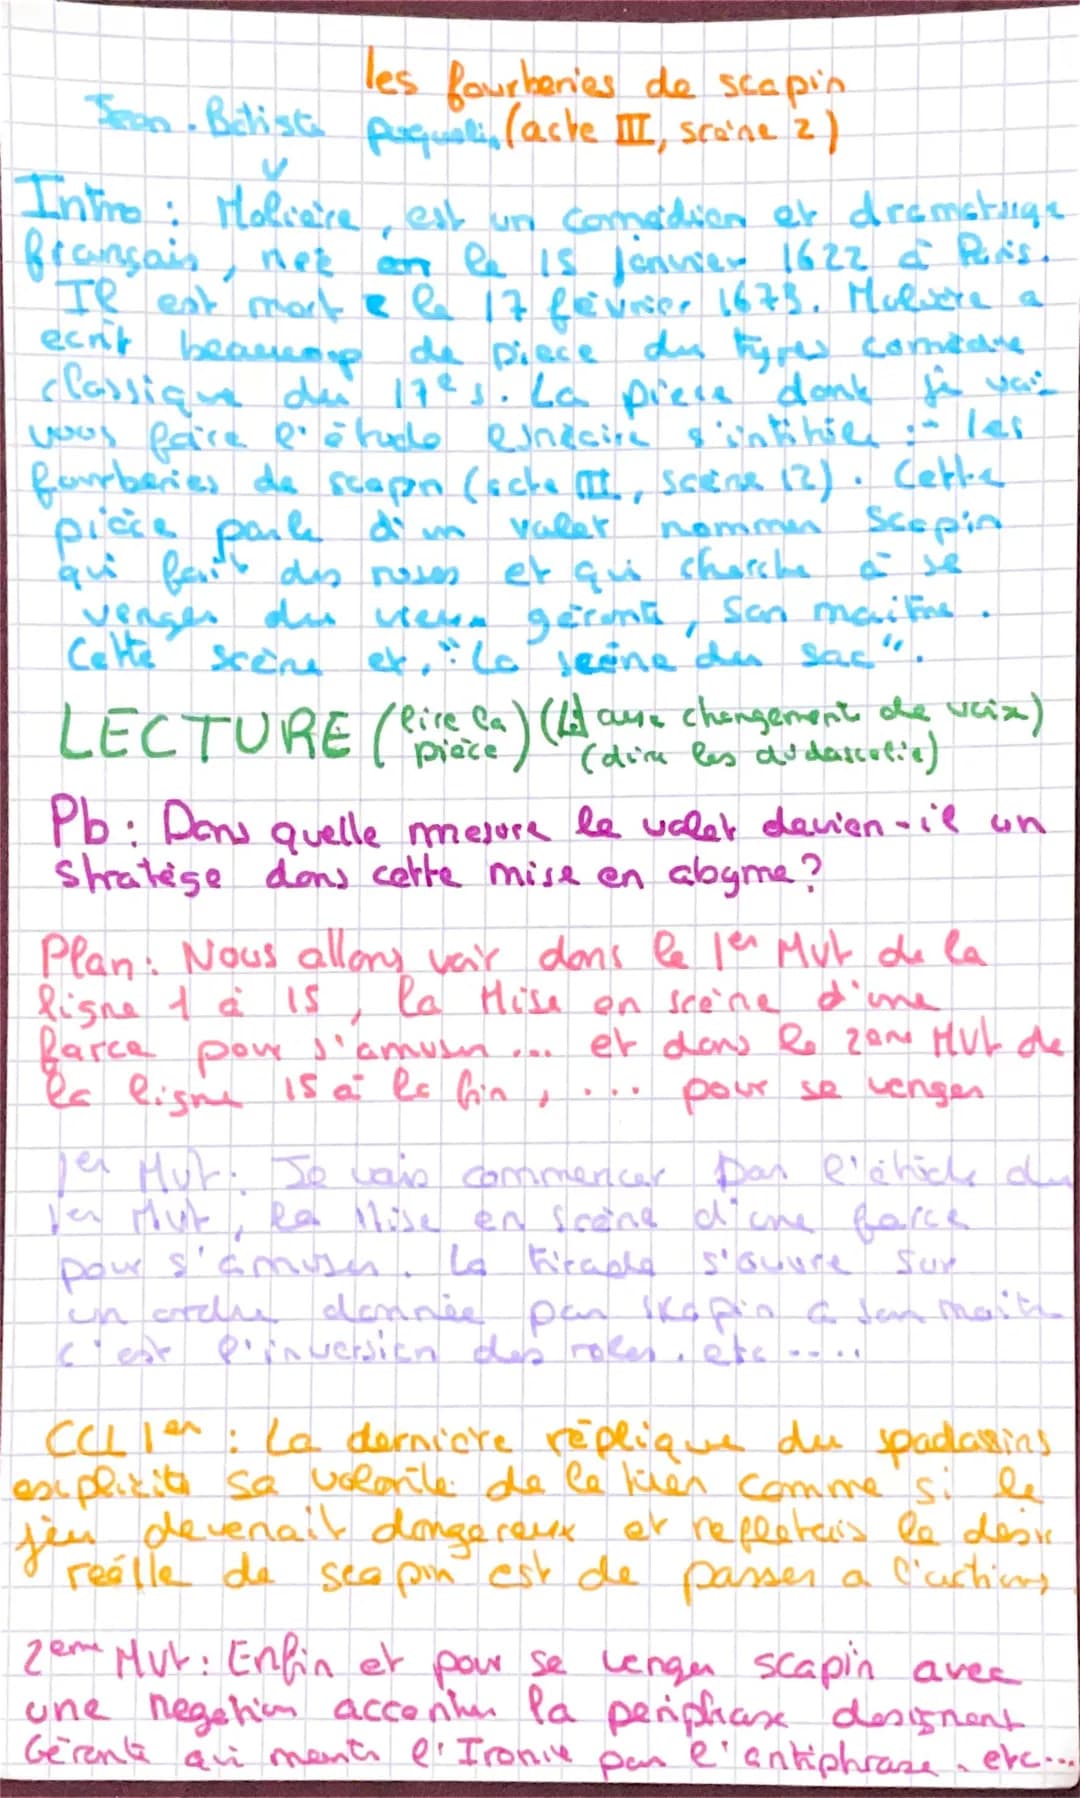 les fourberies de scapin
Jean-Batista Poquelin (acte III, scène 2)
Intro : Molieire, est un comédien et dramaturge
français, neé en le 15 janvier 1622 à Paris.
Il est mort le 17 février 1673. Moliere a
ecrit beaucoup de piece du types comédie
classique du 17e s. La pièce dont je vais
vous faire l'étude linéaire s'intitule :- les
fourberies de scapin (acte III, scène (2). Cette
pièce parle d'un valet nommer Scapin
qui fait des ruses et qui cherche à se
venger du vieux géronte, son maitre.
Cette scène et, "la scène du sac".
LECTURE (lire la pièce) (avec changement de voix)
(dire les dudascalie)
Pb : Dans quelle mesure le valet devien-il un
stratège dans cette mise en abyme ?
Plan : Nous allons voir dans le 1er Mvt de la
ligne 1 à 15, la Mise en scène d'une
farce pour s'amuser ... et dans le 2eme Mvt de
la ligne 15 à la fin, ... pour se venger
1er Mvt : Je vais commencer par l'étude du
1er Mvt, la Mise en scène d'une farce
pour s'amuser. La tirade s'ouvre sur
un ordre donnée par skapin à son maitre
c'est l'inversion des roles. etc .....
CCL 1er : La dernière réplique du spadassins
explicite sa volonté de le tuer comme si le
jeu devenait dangereux et refletais le desir
reélle de scapin est de passer a l'actions
2eme Mvt : Enfin et pour se venger scapin avec
une negation accentuer la periphrase designent
Géronte qui mentr l'Ironie par l'antiphrase, etc...